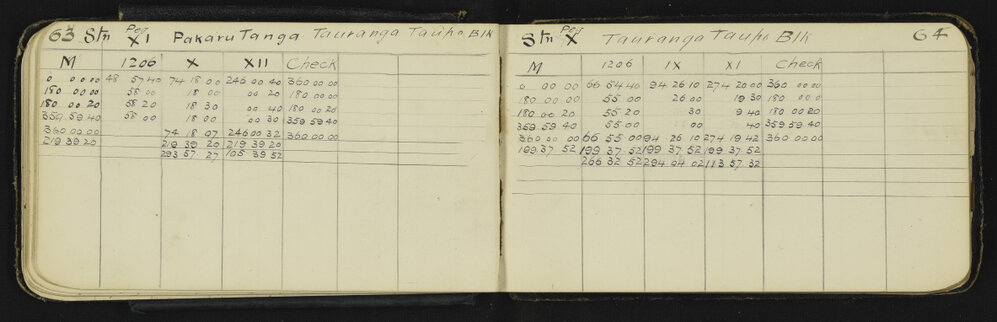 63 Stn Peg XI Pakaru Tanga Tauranga Taupo Blk
M 1206 X XII Check
0 00 00 48 57 40 74 18 00 246 00 40 360 00 00
180 00 00 58 00 18 00 00 20 180 00 00
180 00 20 58 20 18 30 00 40 180 00 20
359 59 40 58 00 18 00 00 30 359 59 40
360 00 00 74 18 07 246 00 32 360 00 00
219 39 20 219 39 20 219 39 20
293 57 27 105 39 52
Stn Peg X Tauranga Taupo Blk 64
M 1206 IX XI Check
0 00 00 66 54 40 94 26 10 274 20 00 360 00 00
180 00 00 55 00 26 00 19 30 180 00 00
180 00 20 55 20 30 9 40 180 00 20
359 59 40 55 00 00 40 359 59 40
360 00 00 66 55 00 94 26 10 274 19 42 360 00 00
199 37 52 199 37 52 199 37 52 199 37 52
266 32 52 294 04 02 113 57 32